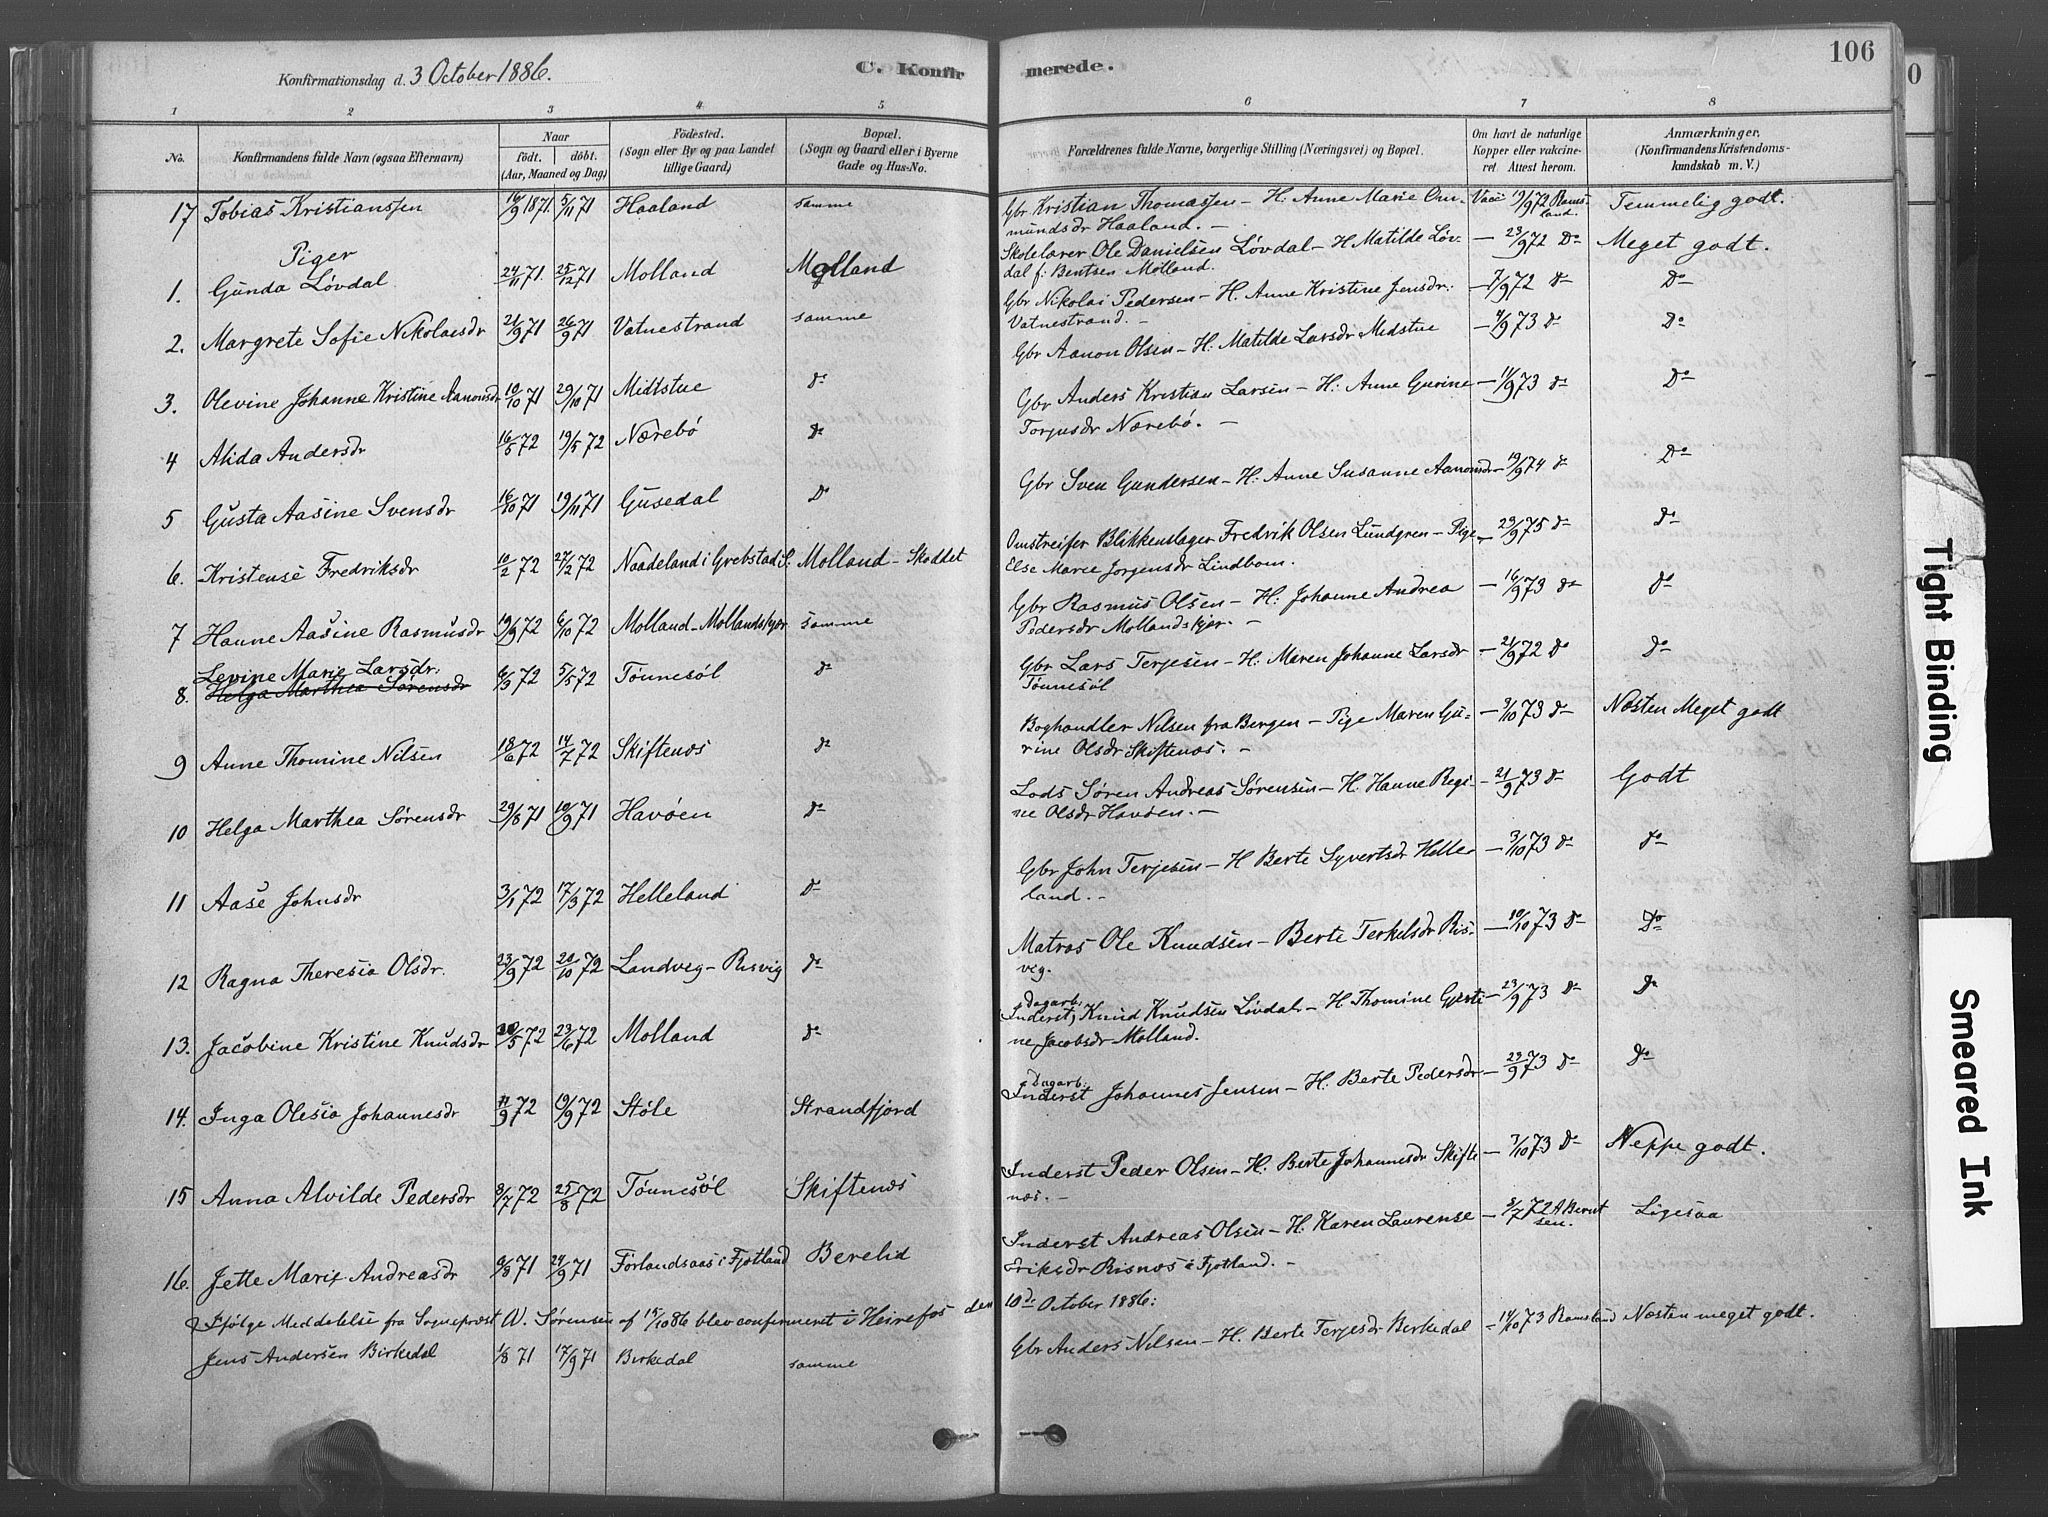 106
Konfirmationsdag d. 3 October 1886.
C. Konfirmerede.
1 2 3 4 5 6 7 8
No.
Konfirmandens fulde Navn (ogsaa Efternavn)
Naar
födt. döbt.
(Aar, Maaned og Dag)
Födested.
(Sogn eller By og paa Landet
tillige Gaard)
Bopæl.
(Sogn og Gaard eller i Byerne
Gade og Hus-No.
Forældrenes fulde Navne, borgerlige Stilling (Næringsvei) og Bopæl.
Om havt de naturlige
Kopper eller vakcine-
ret. Attest herom.
Anmærkninger.
(Konfirmandens Kristendoms-
kundskab m. V.)
17 Tobias Kristianssen 16/9 1871 5/11 71 Haaland samme Gbr Kristian Thomassen - H. Anne Marie Om-
mundsdr Haaland. - Vacc 19/9 72 Rams-
land. Temmelig godt.
Piger
1. Gunda Lövdal 24/11 71. 25/12 71 Molland Molland Skolelærer Ole Danielsen Lövdal - H Matilde Löv-
dal f. Bentsen Molland. - 23/9 72 Do Meget godt.
2. Margrete Sofie Nikolaisdr 21/9 71 26/9 71 Vatnestrand samme Gbr Nikolai Pedersen - H. Anne Kristine Jensdr.
Vatnestrand. - - 7/9 72 Do Do
3. Olevine Johanne Kristine Aanonsdr 10/10 71 29/10 71 Midtstue Do Gbr Aanon Olsen - H. Matilde Larsdr Midstue - 4/9 73 Do Do
4 Alida Andersdr 16/5 72 19/5 72 Nærebö Do Gbr Anders Kristian Larsen - H: Anne Gurine
Torjusdr Nærebö. - - 11/9 73 Do Do
5 Gusta Aasine Svensdr 16/10 71 19/11 71 Gusedal Do Gbr Sven Gundersen - H: Anne Susanne Aanonsdr - 19/9 74 Do Do
6. Kristense Fredriksdr 10/2 72 27/2 72 Naadeland i Grebstad S. Molland - Skoddet Omstreifer Blikkenslager Fredrik Olsen Lundgren - Pige
Else Marie Jorgensdr Lindbom. - 29/9 75 Do Do
7 Hanne Aasine Rasmusdr 19/9 72 6/10 72 Molland - Mollandskjær samme Gbr Rasmus Olsen - H: Johanne Andrea
Pedersdr Mollandskjær. - - 16/9 73 Do Do
Levine Marie Larsdr.
8. Helga Marthea Sørensdr 6/3 72 5/5 72 Tönnesöl Do Gbr Lars Terjesen - H: Maren Johanne Larsdr
Tönnesöl - 21/9 72 Do Do
9 Anne Thomine Nilsen 18/6 72 14/7 72 Skiftenæs Do Boghandler Nilsen fra Bergen - Pige Maren Gu-
rine Olsdr Skiftenæs. - - 3/10 73 Do Næsten Meget godt
10 Helga Marthea Sørensdr 29/8 71 10/9 71 Havöen Do Lods Søren Andreas Sørensen - H. Hanne Regi-
ne Olsdr Havöen. - - 21/9 73 Do Godt
11 Aase Johnsdr 3/1 72 17/3 72 Helleland Do Gbr John Terjesen - H Berte Syvertsdr Helle-
land. - - 3/10 73 Do Do
12 Ragna Theresia Olsdr. 23/9 72 20/10 72 Landveg - Risvig Do Matros Ole Knudsen - Berte Terkelsdr Ris-
veg. - 10/10 73 Do Do
13. Jacobine Kristine Knudsdr 20/5 72 23/6 72 Molland Do Dagarb.
Inderst, Knud Knudsen Lövdal - H Thomine Gjerti-
ne Jacobsdr Molland. - 23/9 73 Do Do
14. Inga Olesia Johannesdr 11/9 72 19/9 72 Støle Strandfjord Dagarb.
Inderst Johannes Jensen - H. Berte Pedersdr - 29/9 73 Do Do
15 Anna Alvilde Pedersdr 8/7 72 25/8 72 Tönnesöl Skiftenæs Inderst Peder Olsen - H. Berte Johannesdr Skifte-
næs. - - 7/10 73 Do Neppe godt.
16. Jette Marie Andreasdr 9/8 71 24/9 71 Förlandsaas i Fjotland Berelid Inderst Andreas Olsen - H. Karen Laurense
Eriksdr Risnæs i Fjotland. - - 8/7 72 A Bernt
sen. Ligesaa
Ifølge Meddelelse fra Sogneprest W. Sørensen af 15/10 86 blev confirmeret i Heirefos den 10de October 1886:
Jens Andersen Birkedal 1/8 71 17/9 71 Birkedal samme Gbr Anders Nilsen - H. Berte Terjesdr Birkedal - 14/10 73 Ramsland Næsten meget godt.
Tight Binding
Smeared Ink